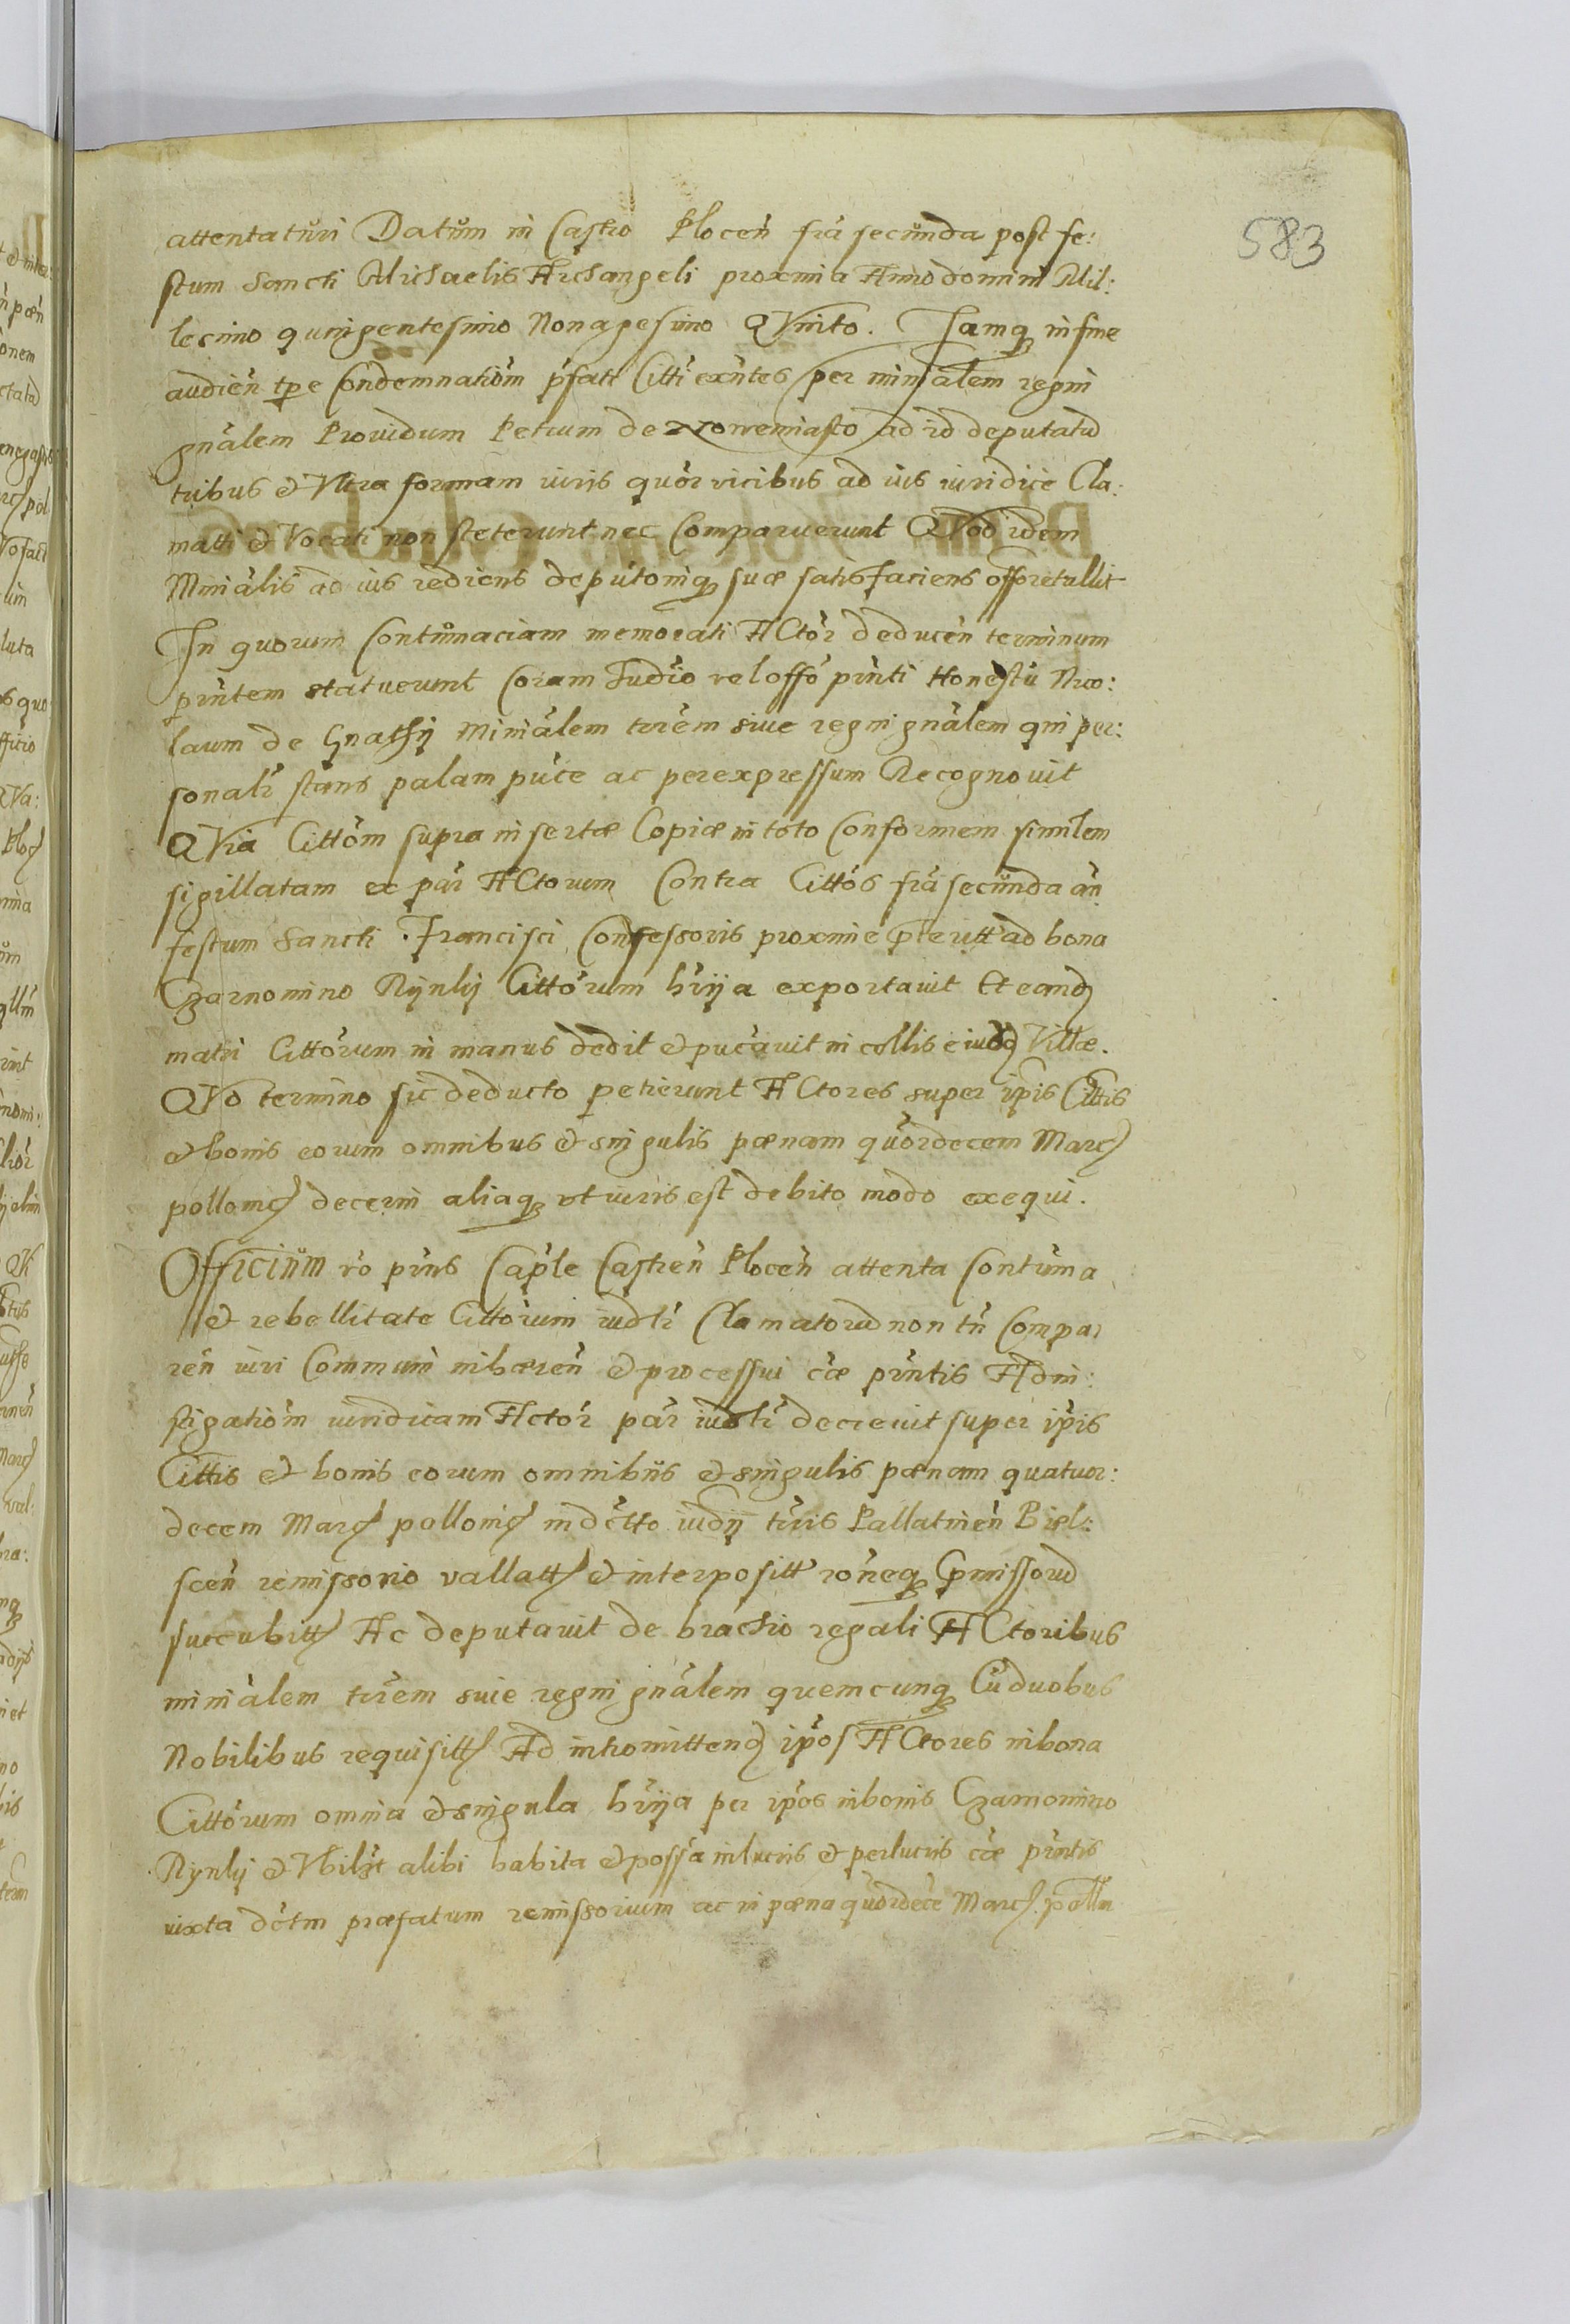 583
attentaturi Datům in Castro Plocen̄ fr̄a secůnda post fe:
stum Sancti Michaelis Archangeli proxima Anno domini Mil:
lesimo quingentesimo Nonagesimo QVinto. Tamq; in fine
audien̄ tp̄e Condemnatiōm p̄fati Citti exn̄tes per min̄alem regni
gn̄alem Providum Petrum de Nowemiasto ad id deputatū
tribus & Vltra formam iuris quōr vicibus ad ius iuridice Cla:
matti & Vocati non steterunt nec Comparuerunt QVod idem
Min̄alis ad ius rediens deputoniq; suæ satisfaciens offo retullit
In quorum Contůmaciam memorati ACtōr deducen̄ terminum
prn̄tem statuerunt Coram Iudīo vel offō prn̄ti Honestū Nico:
laum de Gnathij Minīalem trr̄em siue regni gn̄alem qui per:
sonalr̄ stans palam pūce ac per expressum Recognouit
QVia Cittōm supra insertæ Copiæ in toto Conformem similem
sigillatam ex par̄ ACtorum Contra Cittōs fr̄a secůnda an̄
festum Sancti Francisci Confessoris proxime pt̄eritt ad bona
Czarnomino Rÿnlij Cittōrum hr̄ija exportauit Et eand;
matri Cittōrum in manus dedit & pūcauit in collis eiusd; Villæ.
QVo termino sic deducto petierunt ACtores super ip̄is Cittis
& bonis eorum omnibus & singulis pœnam quōrdecem Marc;
pollonic; decerni aliaq; vt iuris est debito modo exequi.
Officiům v̄o prn̄s Cap̄le Castren̄ Plocen̄ attenta Contůma
& rebellitate Cittōrum iudlr̄ Clamatorū non tn̄ Compa:
ren̄ iuri Communi inhæren̄ & processui cæ prn̄tis Ad in:
stigatiōm iuridicam Actōr par̄ iudlr̄ decreuit super ip̄is
Cittis & bonis eorum omnibůs & singulis pœnam quatuor:
decem Marc; pollonic; in dc̄tto iudij trr̄is Pallatinen̄ Biel:
scen̄ remissorio vallatt; & interpositt rōneq; Pmissorū
succubitt; Ac deputauit de brachio regali ACtoribus
minīalem trr̄em siue regni gn̄alem quemcunq; Cū duobus
Nobilibus requisitt; Ad intromittend; ip̄os ACtores in bona
Cittōrum omnia & singula hr̄ija per ip̄os in bonis Czarnomino
Rÿnlij & Vbilzt alibi habita & possā in lucris & perlucris cæ prn̄tis
iuxta dc̄tm præfatum remissorium ac in pœna quōrdece Marc; pollm